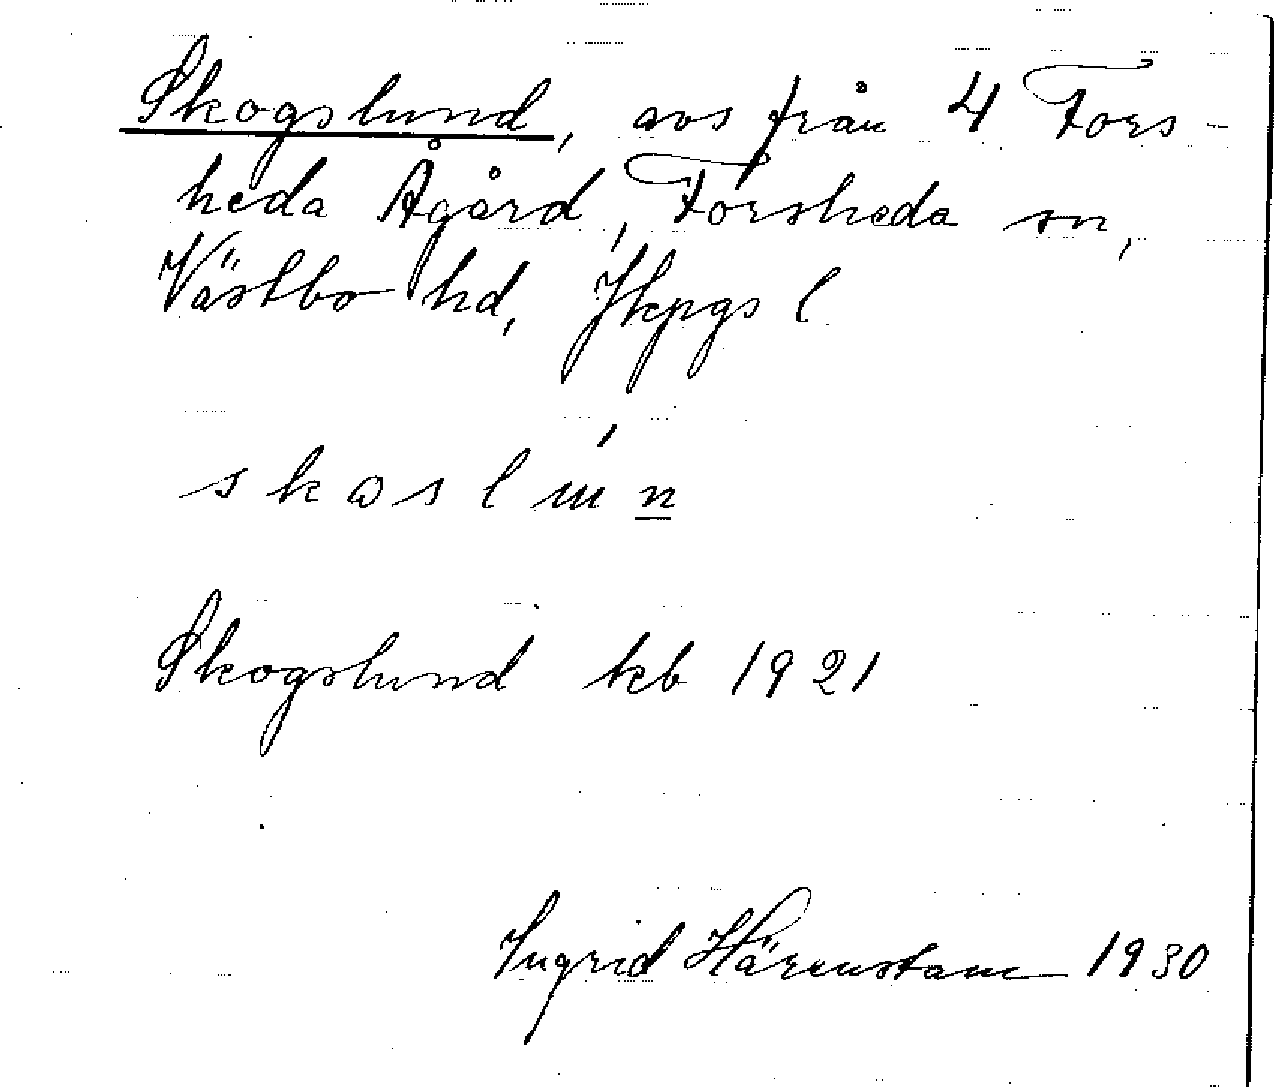 Skogslund, avs från 4 Fors-
heda Ågård, Forsheda sn,
Västbo hd, Jkpgs l
Skogslund kb 1921
Ingrid Härenstam 1930